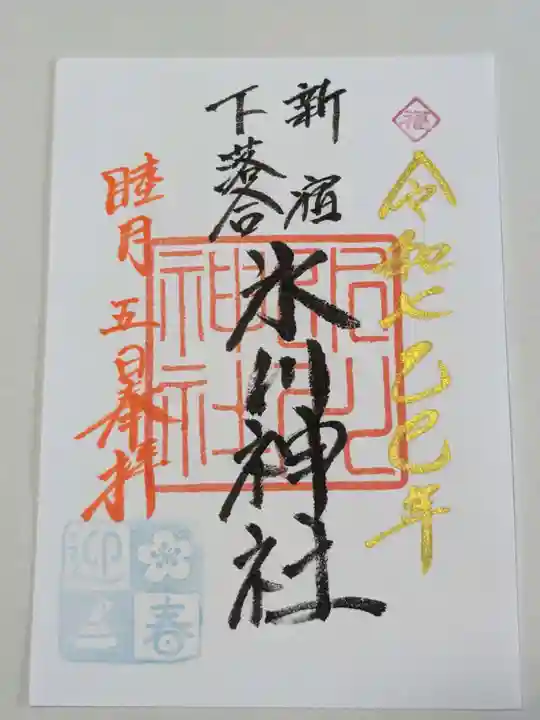 福
令和七乙巳年
新宿
下落合
氷川神社
氷川
神社
睦月五日奉拝
迎春